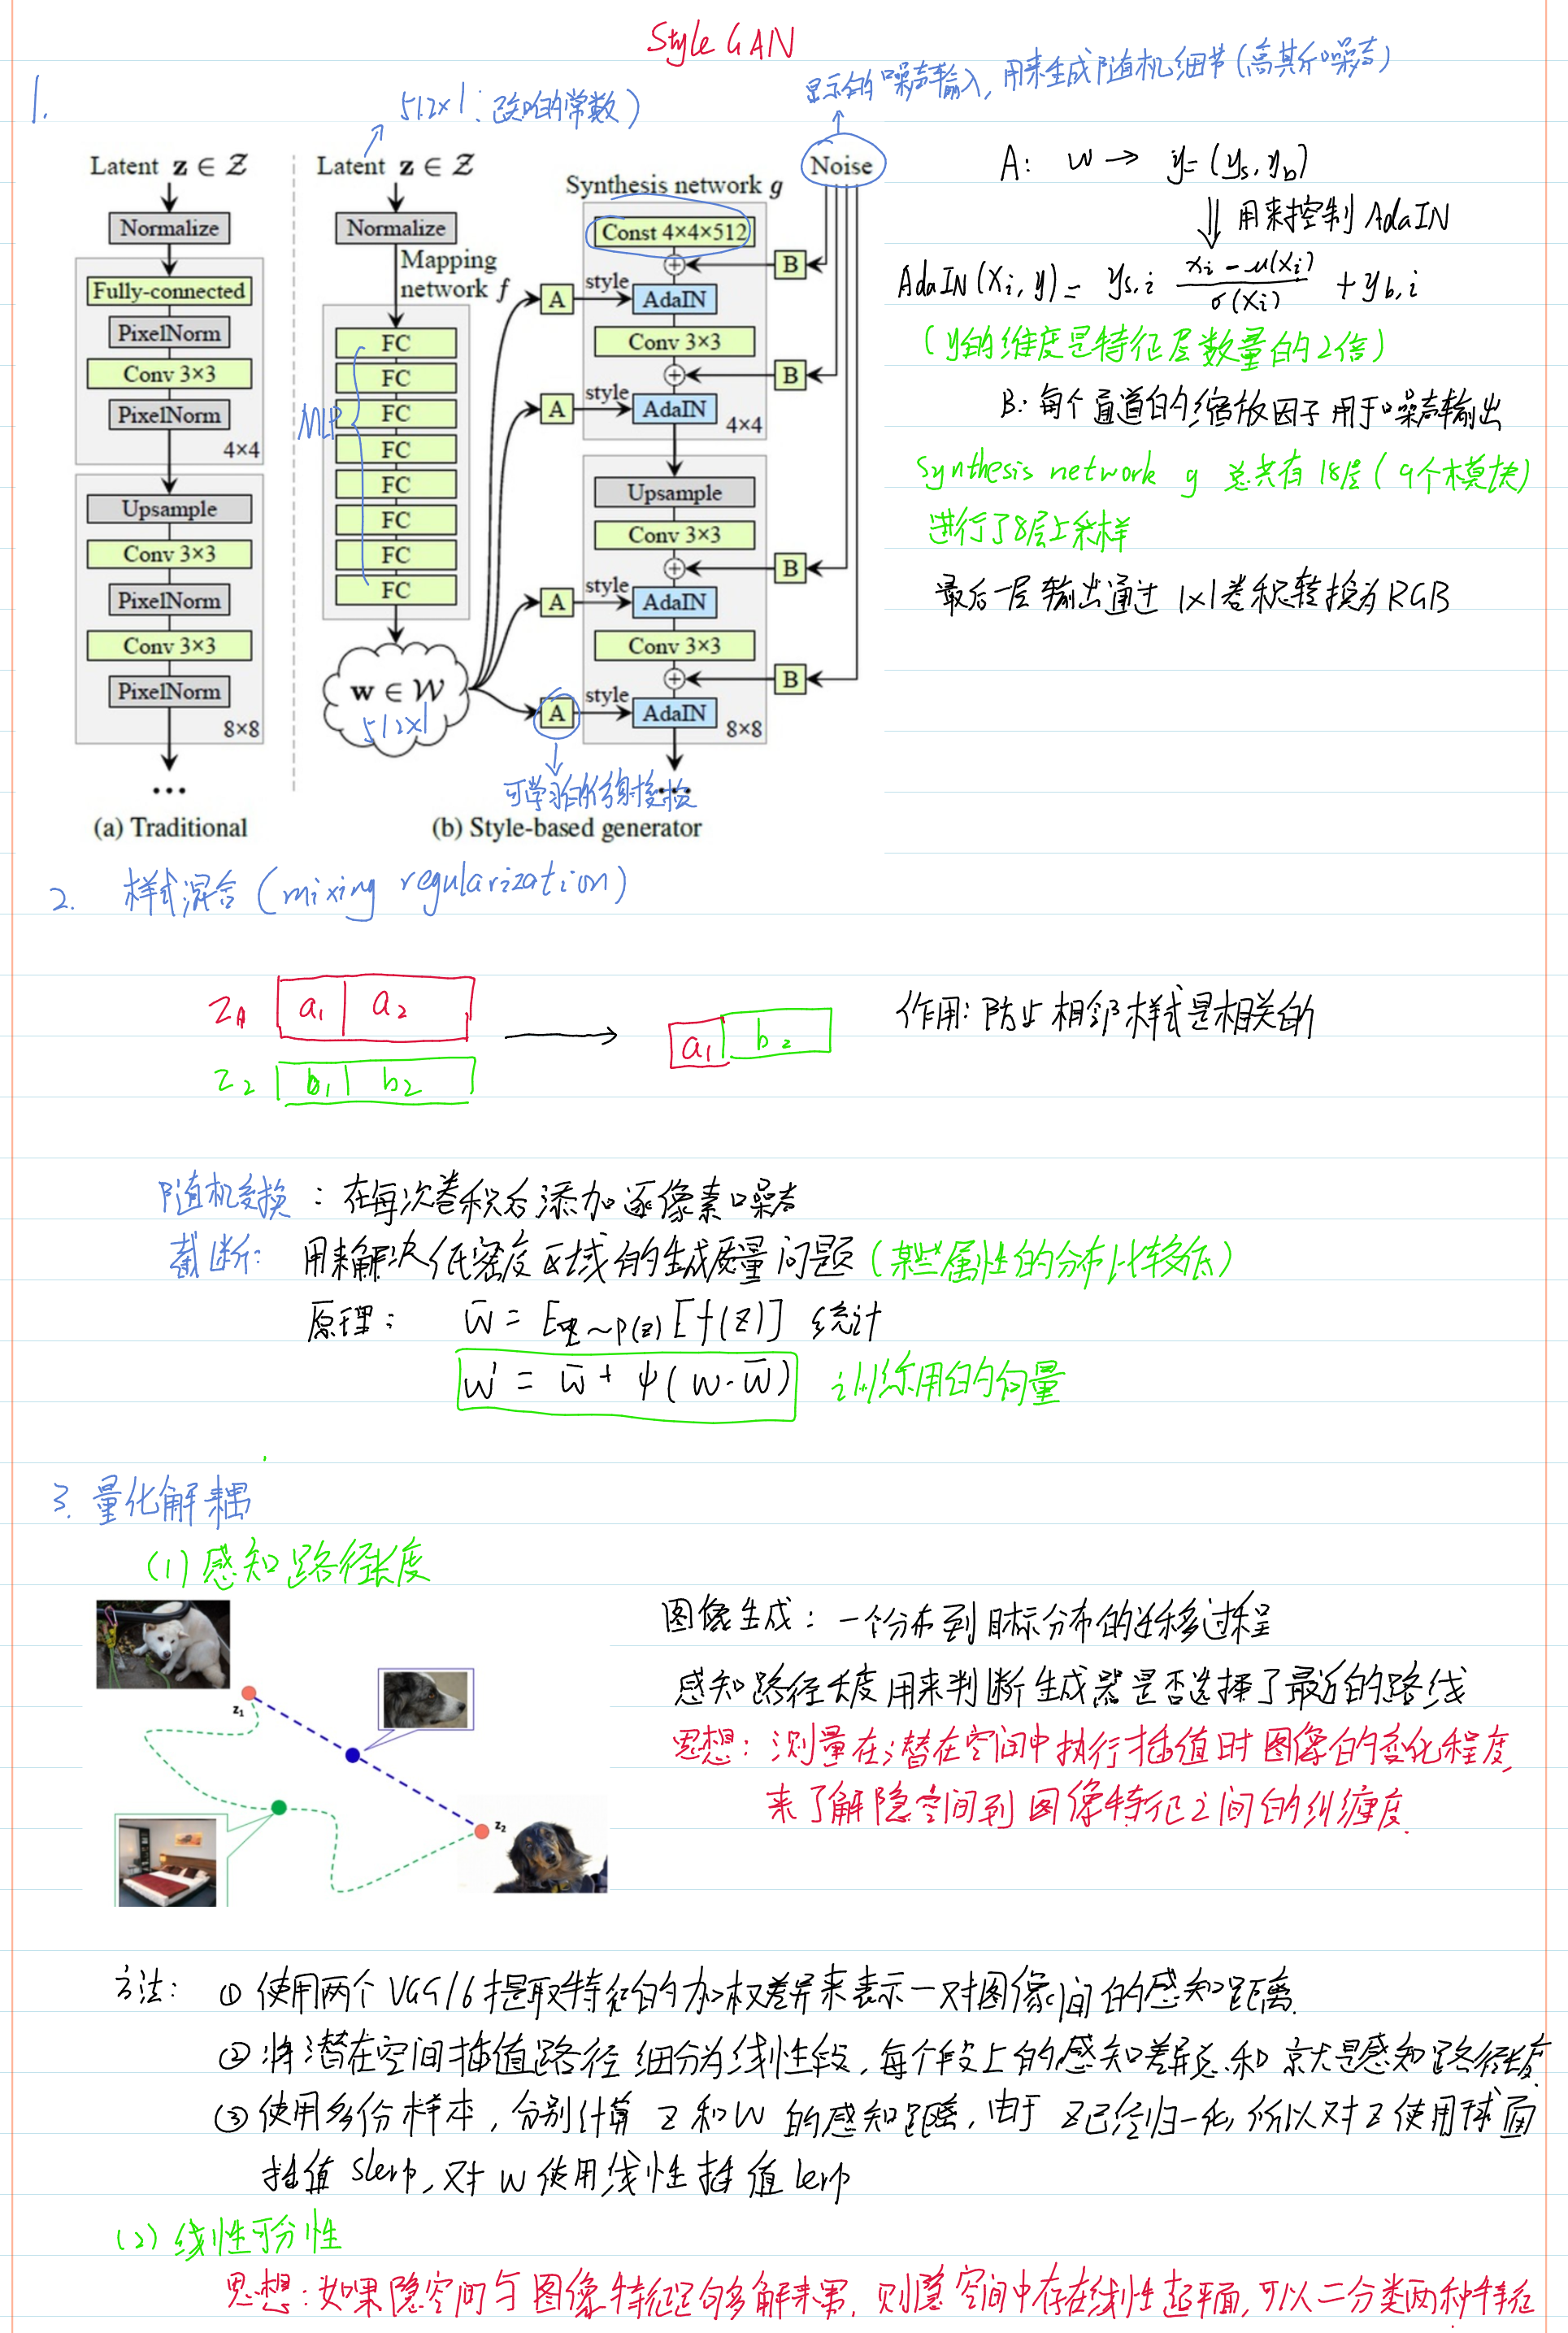 Style GAN
1.
512×1:改成的常数)
显示的噪声输入,用来生成随机细节(高其斯噪声)
Latent z ∈ Z
Normalize
Fully-connected
PixelNorm
Conv 3×3
PixelNorm
4×4
Upsample
Conv 3×3
PixelNorm
Conv 3×3
PixelNorm
8×8
...
(a) Traditional
Latent z ∈ Z
Normalize
Mapping
network f
MLP
FC
FC
FC
FC
FC
FC
FC
FC
w ∈ W
512×1
Noise
Synthesis network g
Const 4×4×512
B
A
style
AdaIN
Conv 3×3
B
A
style
AdaIN
4×4
Upsample
Conv 3×3
B
A
style
AdaIN
Conv 3×3
B
A
style
AdaIN
8×8
可学习的仿射变换
...
(b) Style-based generator
A: w → y=(ys, yb)
⇓ 用来控制 AdaIN
AdaIN(xi, y) = ys,i (xi − μ(xi))/σ(xi) + yb,i
(y的维度是特征层数量的2倍)
B: 每个通道的缩放因子用于噪声输出
Synthesis network g 总共有18层(9个模块)
进行了8层上采样
最后一层输出通过 1×1卷积转换为RGB
2. 样式混合(mixing regularization)
ZA a1 a2
Z2 b1 b2
a1 b2
作用:防止相邻样式是相关的
随机变换:在每次卷积后添加逐像素噪声
截断:用来解决低密度区域的生成质量问题(某些属性的分布比较低)
原理: w̄ = Ez~p(z)[f(z)] 统计
w' = w̄ + ψ(w-w̄) 训练用的向量
3. 量化解耦
(1) 感知路径长度
z1
z2
图像生成:一个分布到目标分布的迁移过程
感知路径长度用来判断生成器是否选择了最近的路线
思想:测量在潜在空间中执行插值时图像的变化程度,
来了解隐空间到图像特征之间的纠缠度.
方法: ① 使用两个VGG16提取特征的加权差异来表示一对图像间的感知距离.
② 将潜在空间插值路径细分为线性段,每个段上的感知差异总和就是感知路径长度.
③ 使用多份样本,分别计算 z 和 w 的感知距离,由于 z已经归一化,所以对z使用球面
插值 slerp,对 w 使用线性插值 lerp
(2) 线性可分性
思想:如果隐空间与图像特征足够多解耦,则隐空间中存在线性超平面,可以二分类两种特征